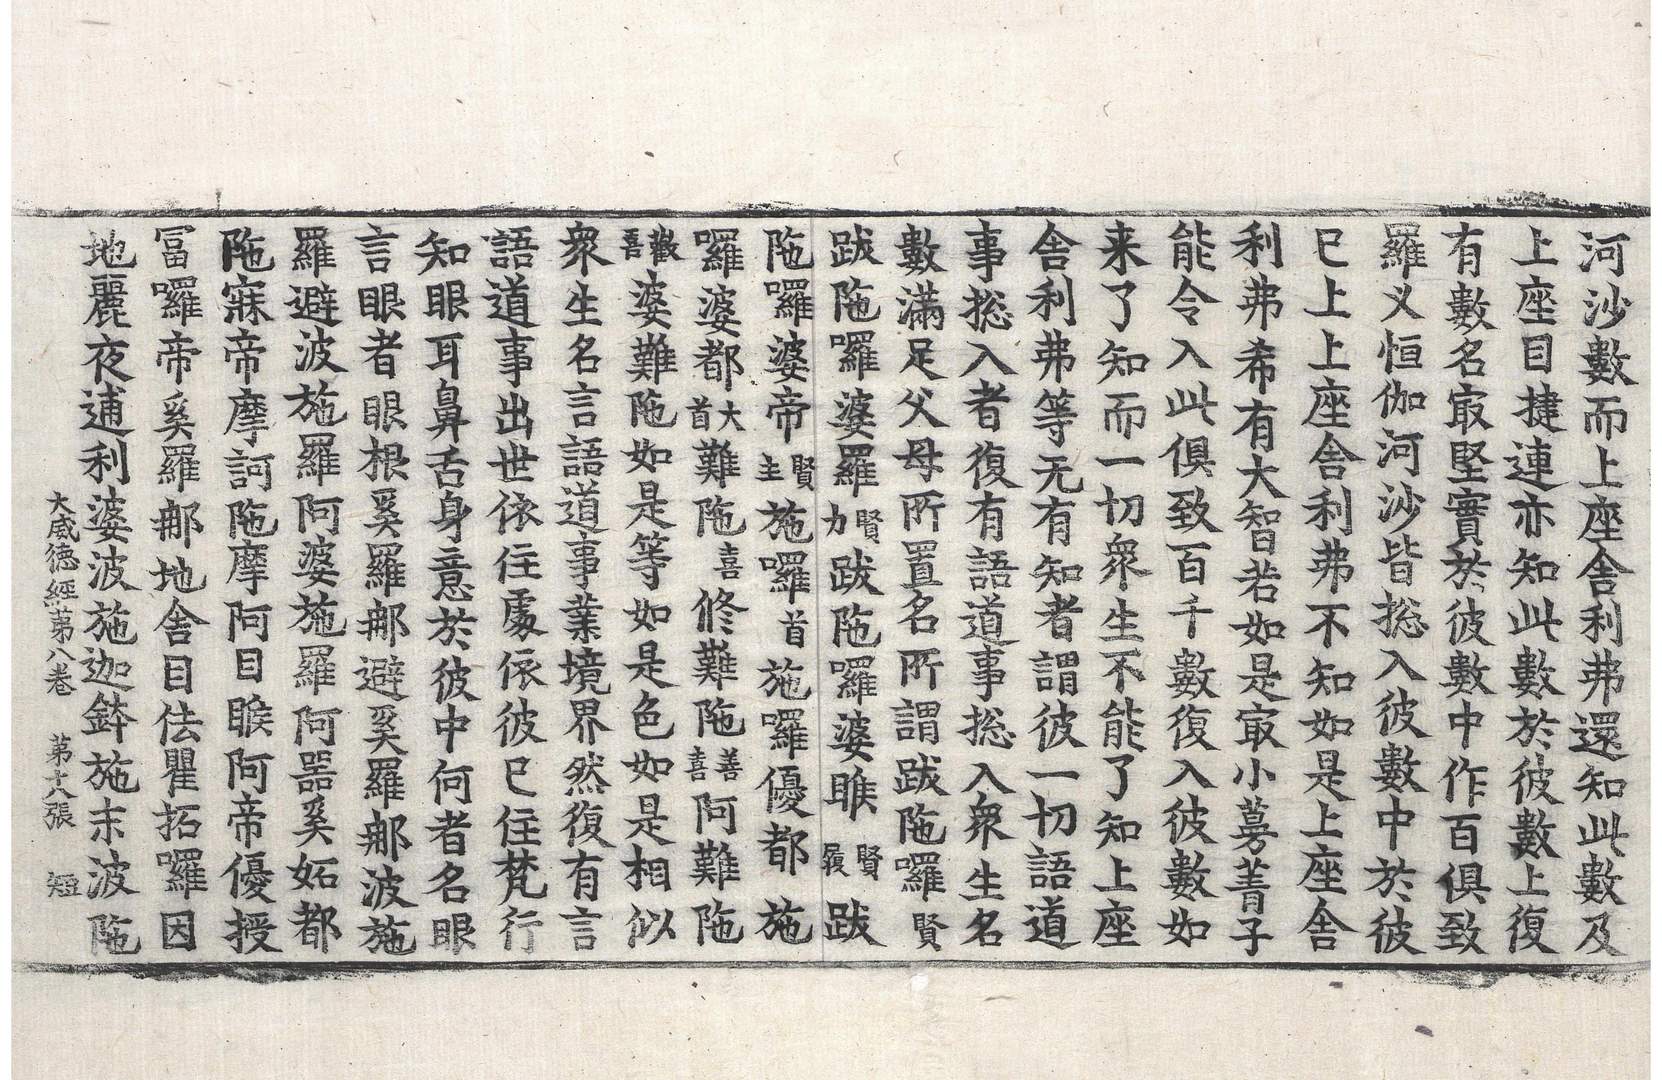 河沙數而上座舍利弗還知此數及
上座目揵連亦知此數於彼數上復
有數名㝡堅實於彼數中作百俱致
羅乂恒伽河沙皆揔入彼數中於彼
已上上座舍利弗不知如是上座舍
利弗希有大智若如是㝡小蒡菁子
能令入此俱致百千數復入彼數如
来了知而一切衆生不能了知上座
舍利弗等无有知者謂彼一切語道
事揔入者復有語道事揔入衆生名
數滿足父母所置名所謂跋陁囉賢
跋陁囉婆羅賢力跋陁囉婆睺賢履跋
陁囉婆帝賢主施囉首施囉優都施
囉婆都大首難陁喜修難陁善喜阿難陁
歡喜婆難陁如是等如是色如是相似
衆生名言語道事業境界然復有言
語道事出世依住處依彼已住梵行
知眼耳鼻舌身意於彼中何者名眼
言眼者眼根奚羅那避奚羅那波施
羅避波施羅阿婆施羅阿噐奚妬都
陁寐帝摩訶陁摩阿目睺阿帝優授
冨囉帝奚羅那地舍目佉瞿拓囉因
地麗夜逋利婆波施迦鉢施末波陁
大威德經第八卷 第十六張 短